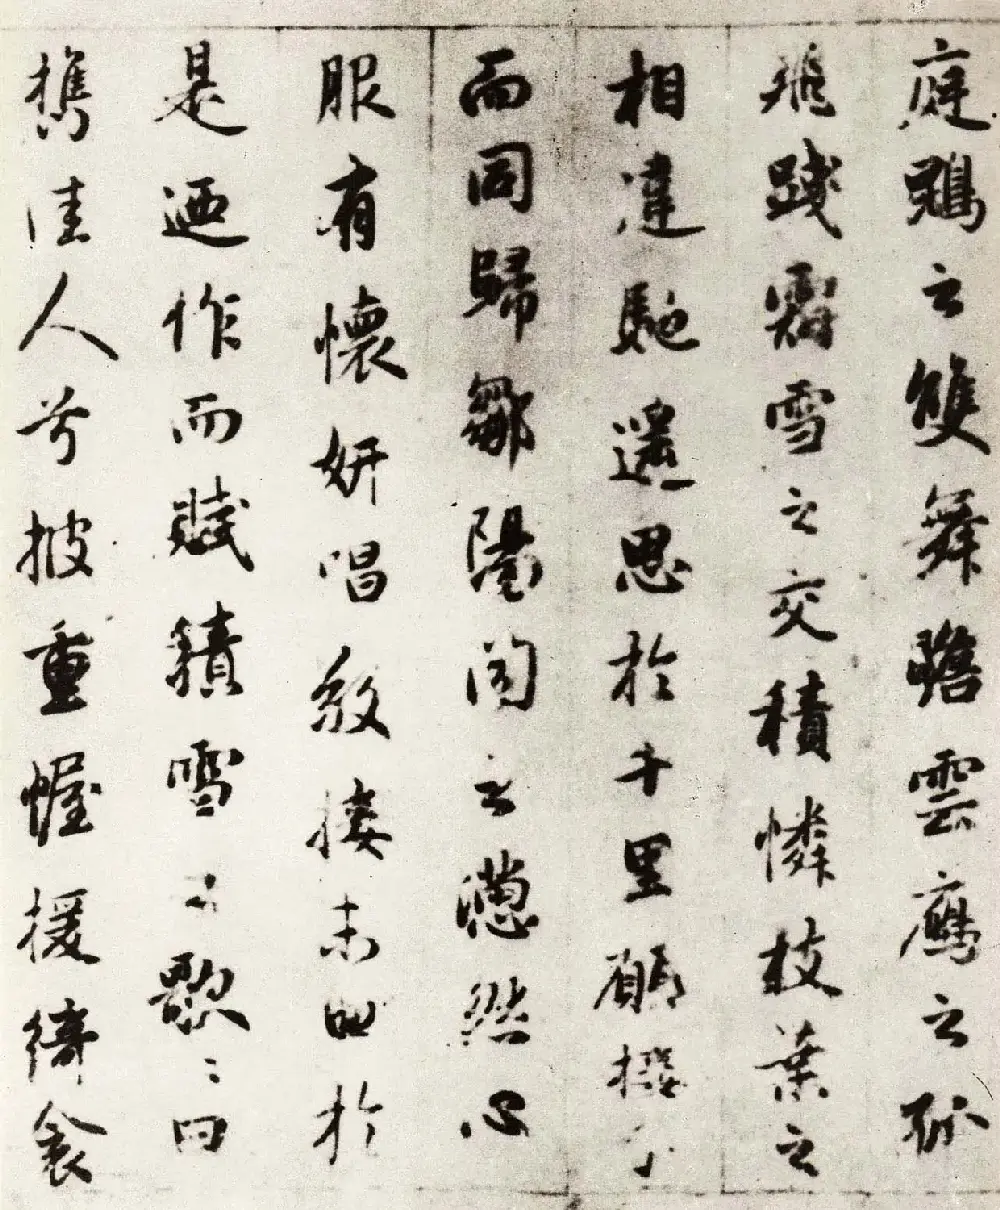 庭鵾之雙舞瞻雲鴈之孤
飛踐霜雪之交積憐枝葉之
相違馳遙思於千里願接手
而同歸鄒陽聞之懣然心
服有懷妍唱敬接末曲於
是迺作而賦積雪之歌〻曰
攜佳人兮披重幄援綺衾